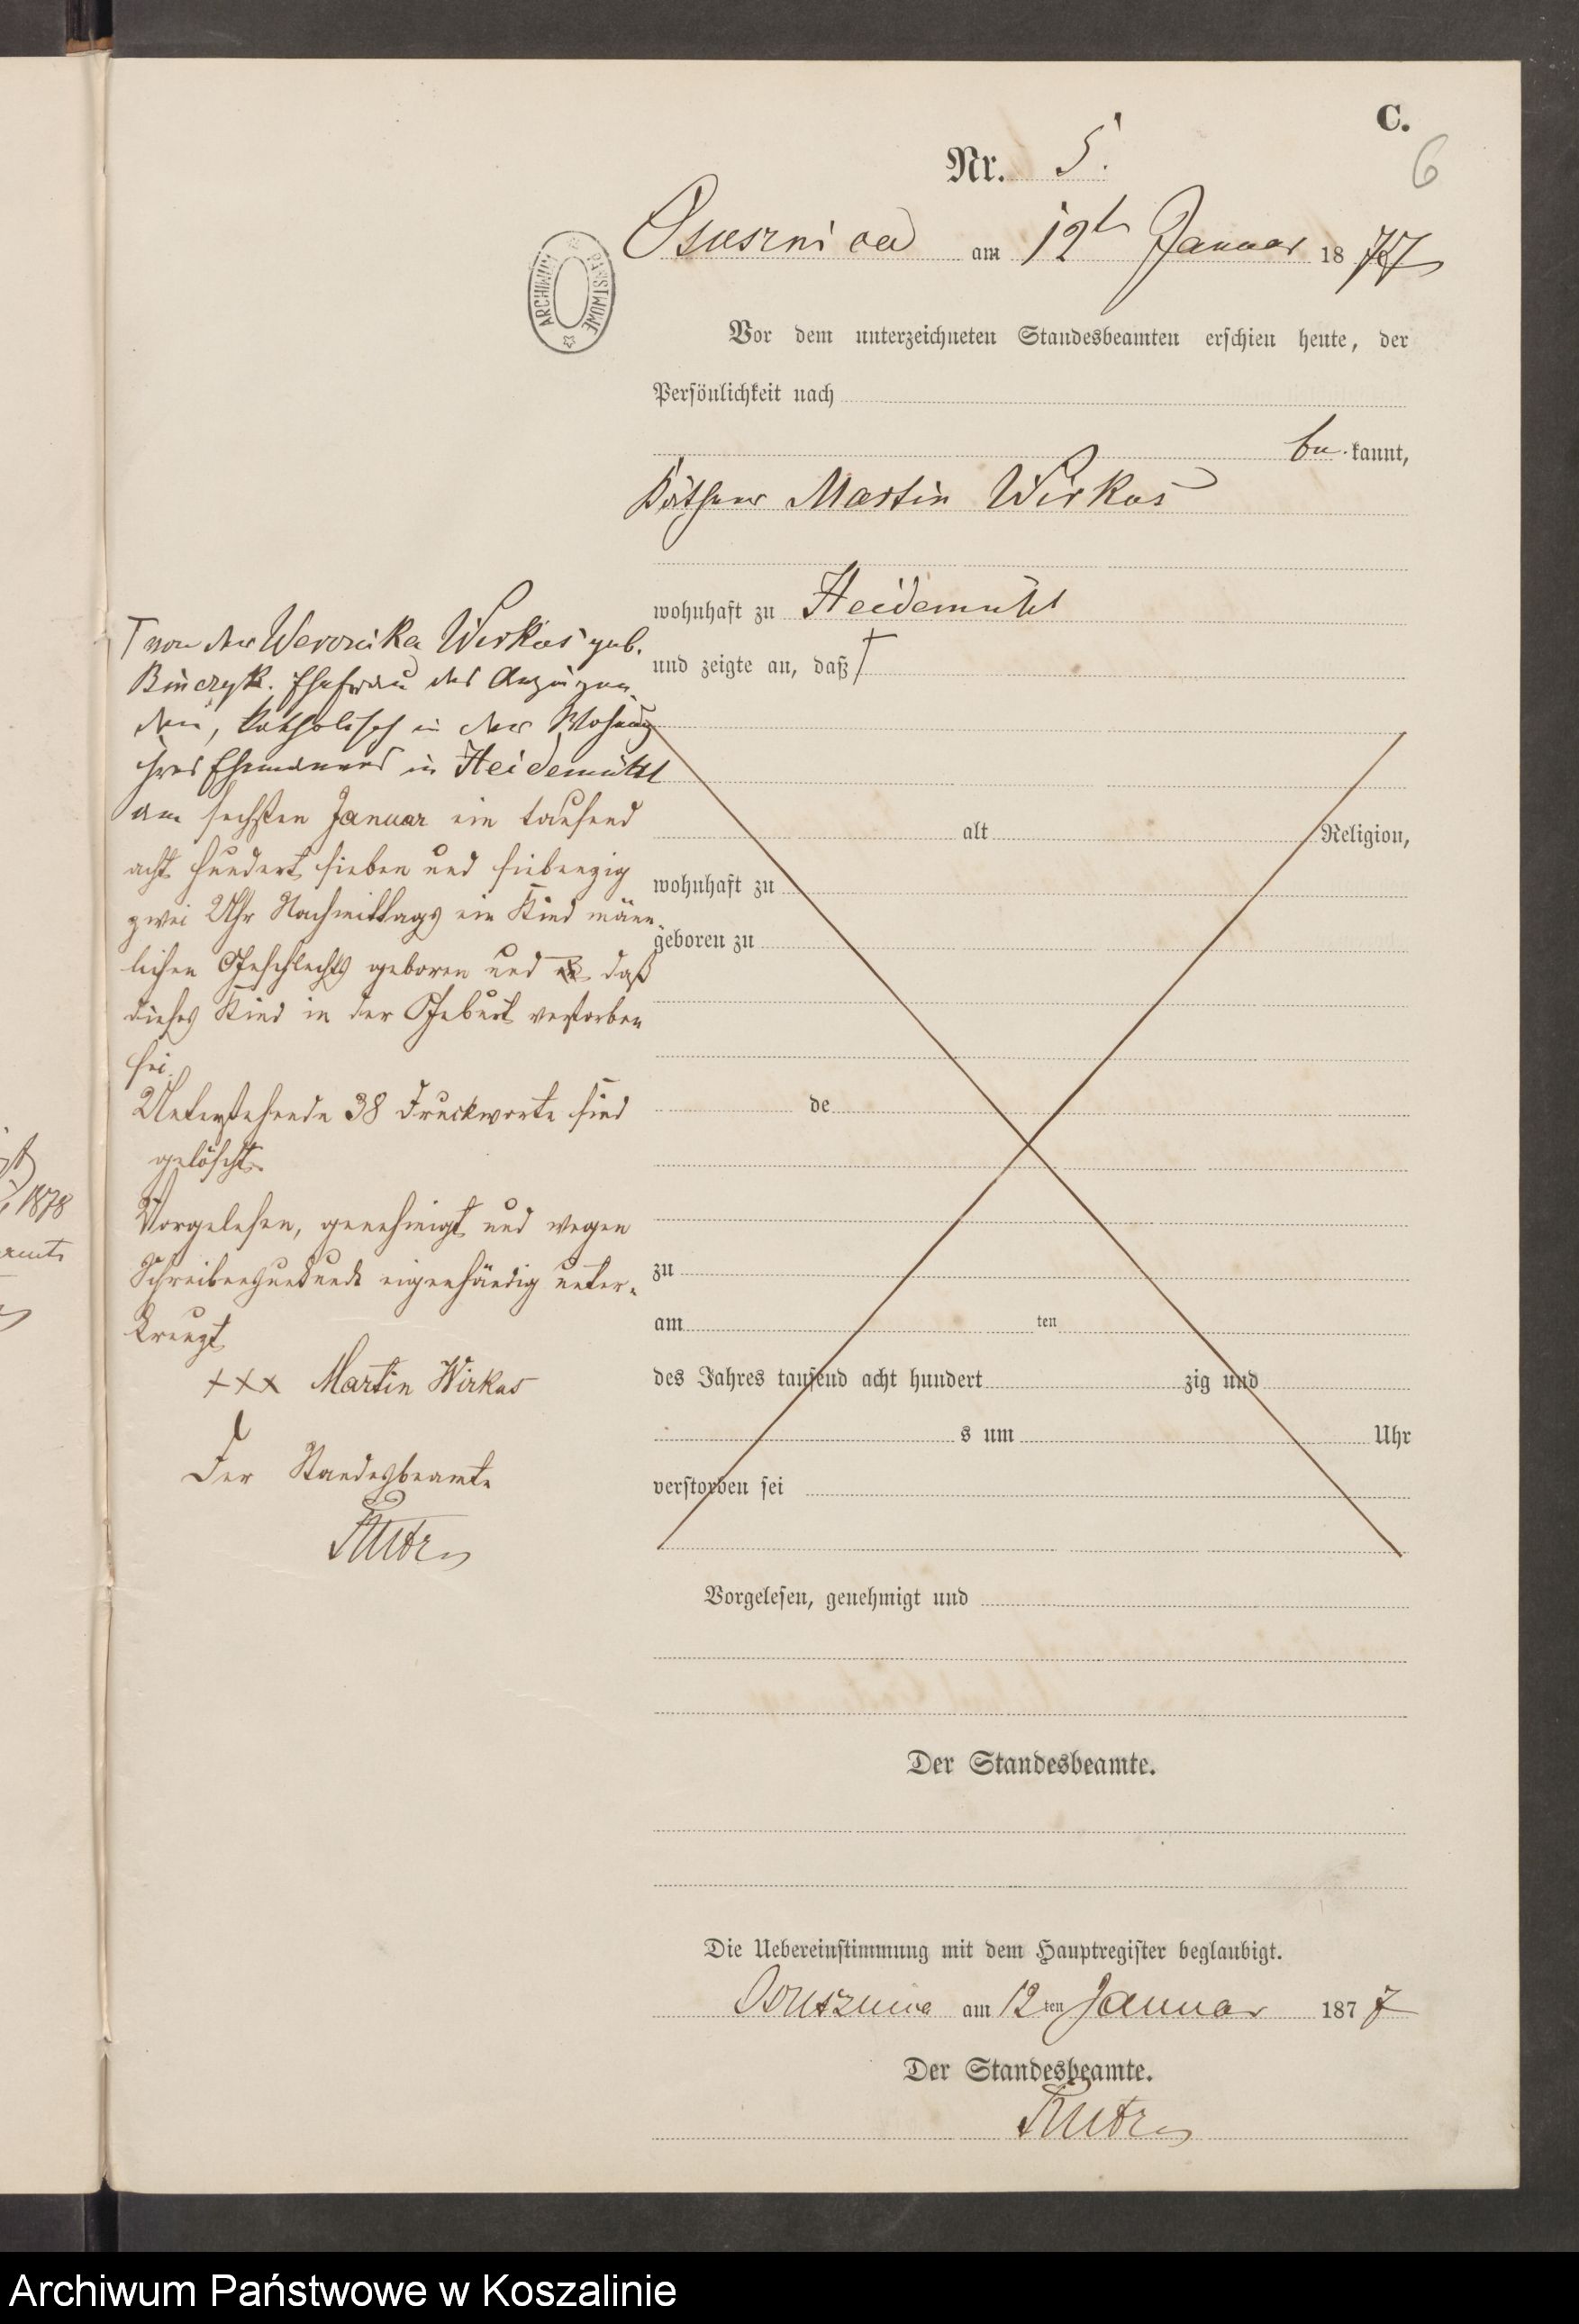 C.
6
Nr. 5.
Osusznica am 12t Januar 1877
ARCHIWUM PAŃSTWOWE
Vor dem unterzeichneten Standesbeamten erschien heute, der
Persönlichkeit nach
be kannt,
Käthner Martin Wirkus
wohnhaft zu Heidemühl
und zeigte an, daß †
† von der Weronika Wirkus geb.
Binczyk. Ehefrau des Anzeigen-
den, katholisch in der Wohnung
ihres Ehemannes in Heidemühl
am sechsten Januar ein tausend
acht hundert sieben und siebenzig
zwei Uhr Nachmittags ein Kind männ-
lichen Geschlechts geboren und daß
dieses Kind in der Geburt verstorben
sei.
Untenstehende 38 Druckworte sind
gelöscht.
Vorgelesen, genehmigt und wegen
Schreibensunkunde eigenhändig unter-
kreuzt
+++ Martin Wirkus
Der Standesbeamte
alt Religion,
wohnhaft zu
geboren zu
de
zu
am ten
des Jahres tausend acht hundert zig und
s um Uhr
verstorben sei
Vorgelesen, genehmigt und
Der Standesbeamte.
Die Uebereinstimmung mit dem Hauptregister beglaubigt.
Osusznica am 12ten Januar 1877
Der Standesbeamte.
1878
Archiwum Państwowe w Koszalinie